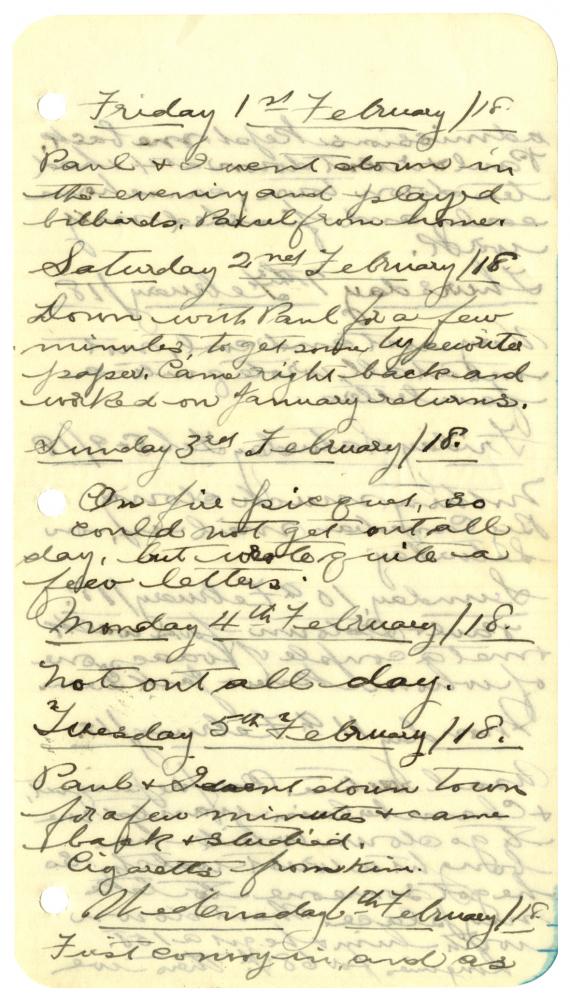 Friday 1st February/18.
Paul & I went down in
the evening and played
billiards. Parcel from home.
Saturday 2nd February/18
Down with Paul for a few
minutes, to get some typewriter
paper. Came right back and
worked on January returns.
Sunday 3rd February/18.
On fire picquet, so
could not get out all
day, but wrote quite a
few letters.
Monday 4th February/18.
Not out all day.
Tuesday 5th February/18.
Paul & I went down town
for a few minutes & came
back & studied.
Cigarettes from
Wednesday 6th February/18
First convoy in, and as